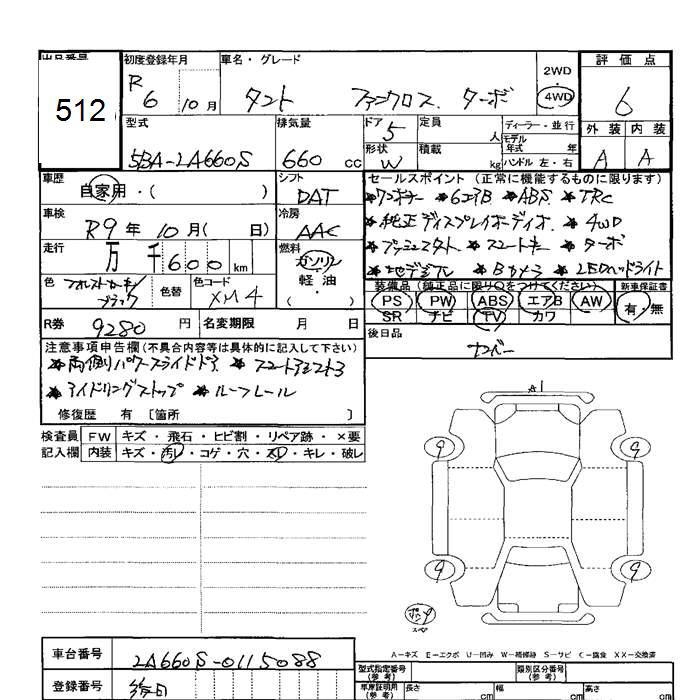 512
初度登録年月 車名・グレード 2WD 評価点
R 6 10月 タント ファンクロス ターボ 4WD 6
型式 排気量 ドア 5 定員 人 ディーラー・並行 外装 内装
5BA-LA660S 660cc 形状 W 積載 kg モデル年式 年 ハンドル 左・右 A A
車歴 シフト セールスポイント(正常に機能するものに限ります)
自家用・( ) DAT ★ワンオーナー ★6エアB ★ABS ★TRC
車検 冷房 ★純正ディスプレイオーディオ ★4WD
R9年 10月( 日) AAC ★プッシュスタート ★スマートキー ★ターボ
走行 万 千 600 km 燃料 ガソリン 軽・油 ( ) ★地デジTV ★Bカメラ ★LEDヘッドライト
色 色替 色コード XM4 装備品(純正品に限り○をつけてください) 新車保証書
PS PW ABS エアB AW 有・無
SR ナビ TV カワ
R券 9280 円 名変期限 月 日 後日品
注意事項申告欄(不具合内容等は具体的に記入して下さい) ナンバー
★両側パワースライドドア ★スマートアシスト3
★アイドリングストップ ★ルーフレール
修復歴 有 〔箇所 〕
検査員 FW キズ・飛石・ヒビ割・リペア跡・×要
記入欄 内装 キズ・汚レ・コゲ・穴・スレ・キレ・破レ
A1
9 9
9 9
A-キズ E-エクボ U-凹み W-補修跡 S-サビ C-腐食 XX-交換済
車台番号 LA660S-0115088
登録番号
型式指定番号(参考) 類別区分番号(参考)
車庫証明用(参考) 長さ cm 幅 cm 高さ cm